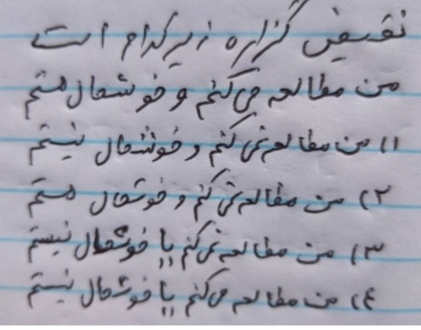 نقیض گزاره زیر کدام است
من مطالعه می‌کنم و خوشحال هستم
۱) من مطالعه نمی‌کنم و خوشحال نیستم
۲) من مطالعه نمی‌کنم و خوشحال هستم
۳) من مطالعه نمی‌کنم یا خوشحال نیستم
۴) من مطالعه می‌کنم یا خوشحال نیستم